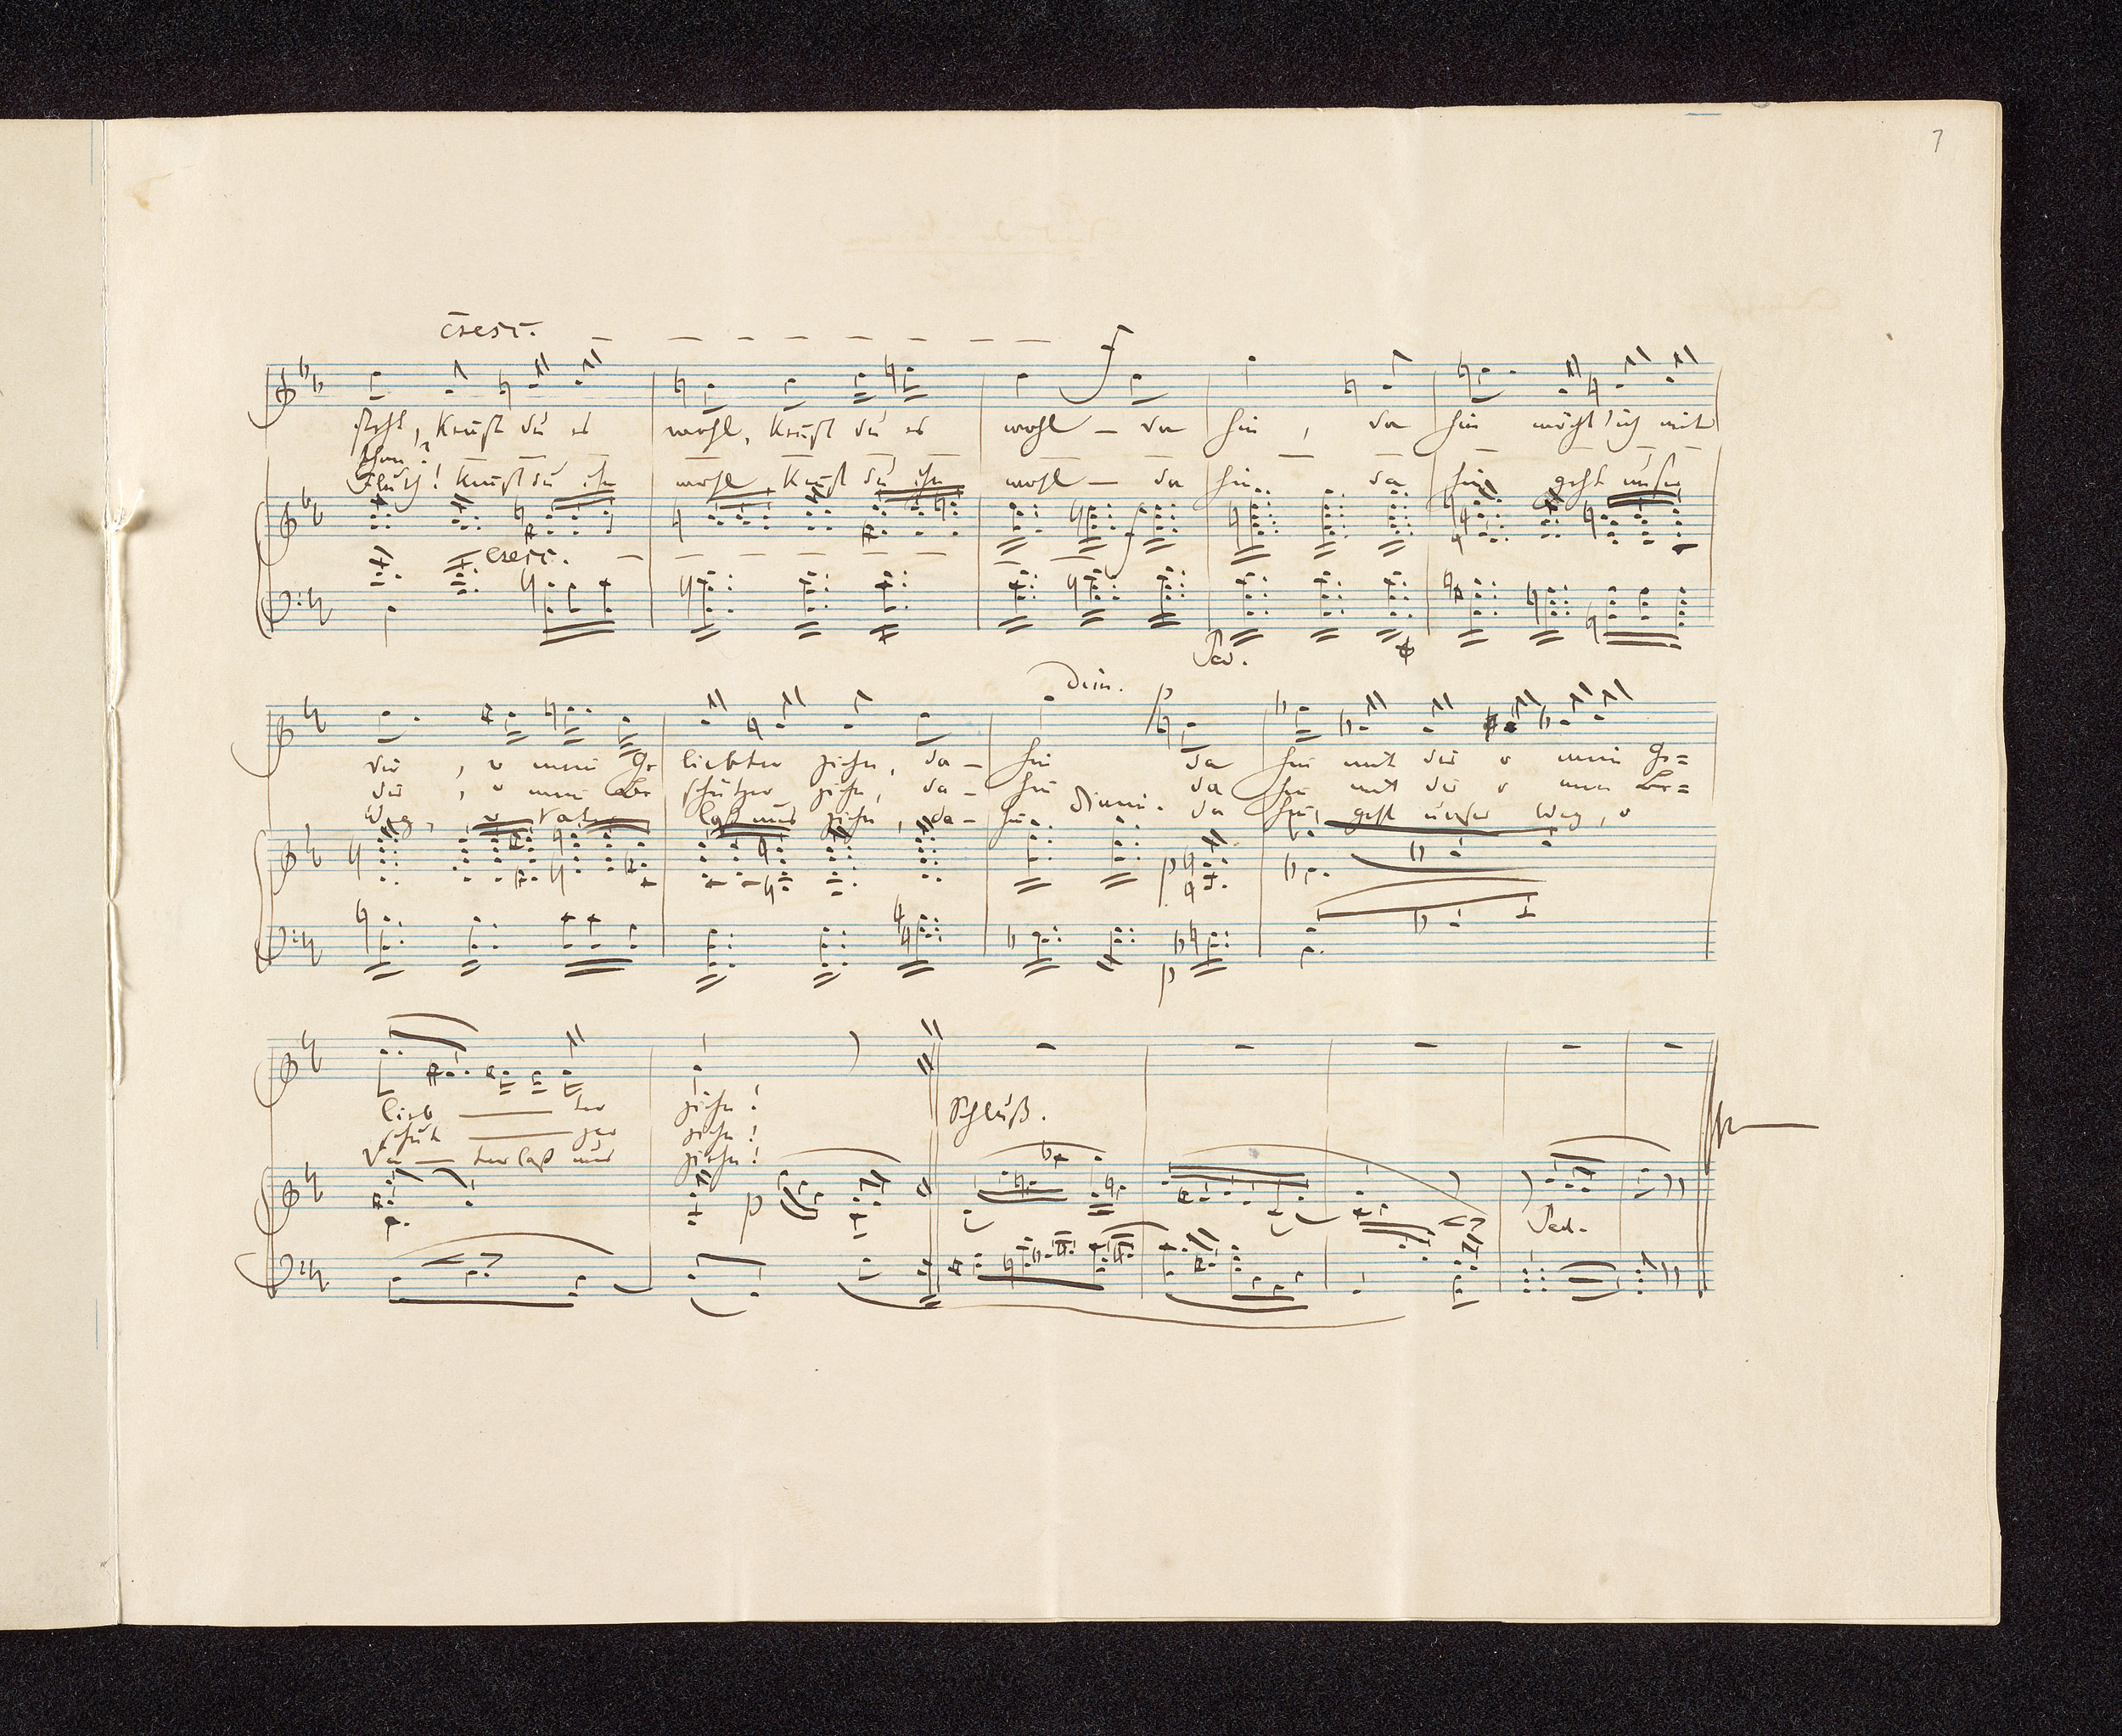 7
cresc.
f
steht, kennst du es wohl, kennst du es wohl – da hin, da hin möcht' ich mit
thun?
Fluth! kennst du ihn wohl, kennst du ihn wohl – da hin da hin geht unser
cresc.
f
Ped.
dim.
p
dir, o mein Ge liebter ziehn, da – hin da hin mit dir o mein Ge=
dir, o mein Be schützer ziehn, da – hin da hin mit dir o mein Be=
dimi.
Weg, o Vater laß uns ziehn, da – hin da hin, geht unser Weg, o
p
p
lieb — ter ziehn!
Schluß.
schütz — zer ziehn!
Va — ter laß uns ziehn!
p
Ped.